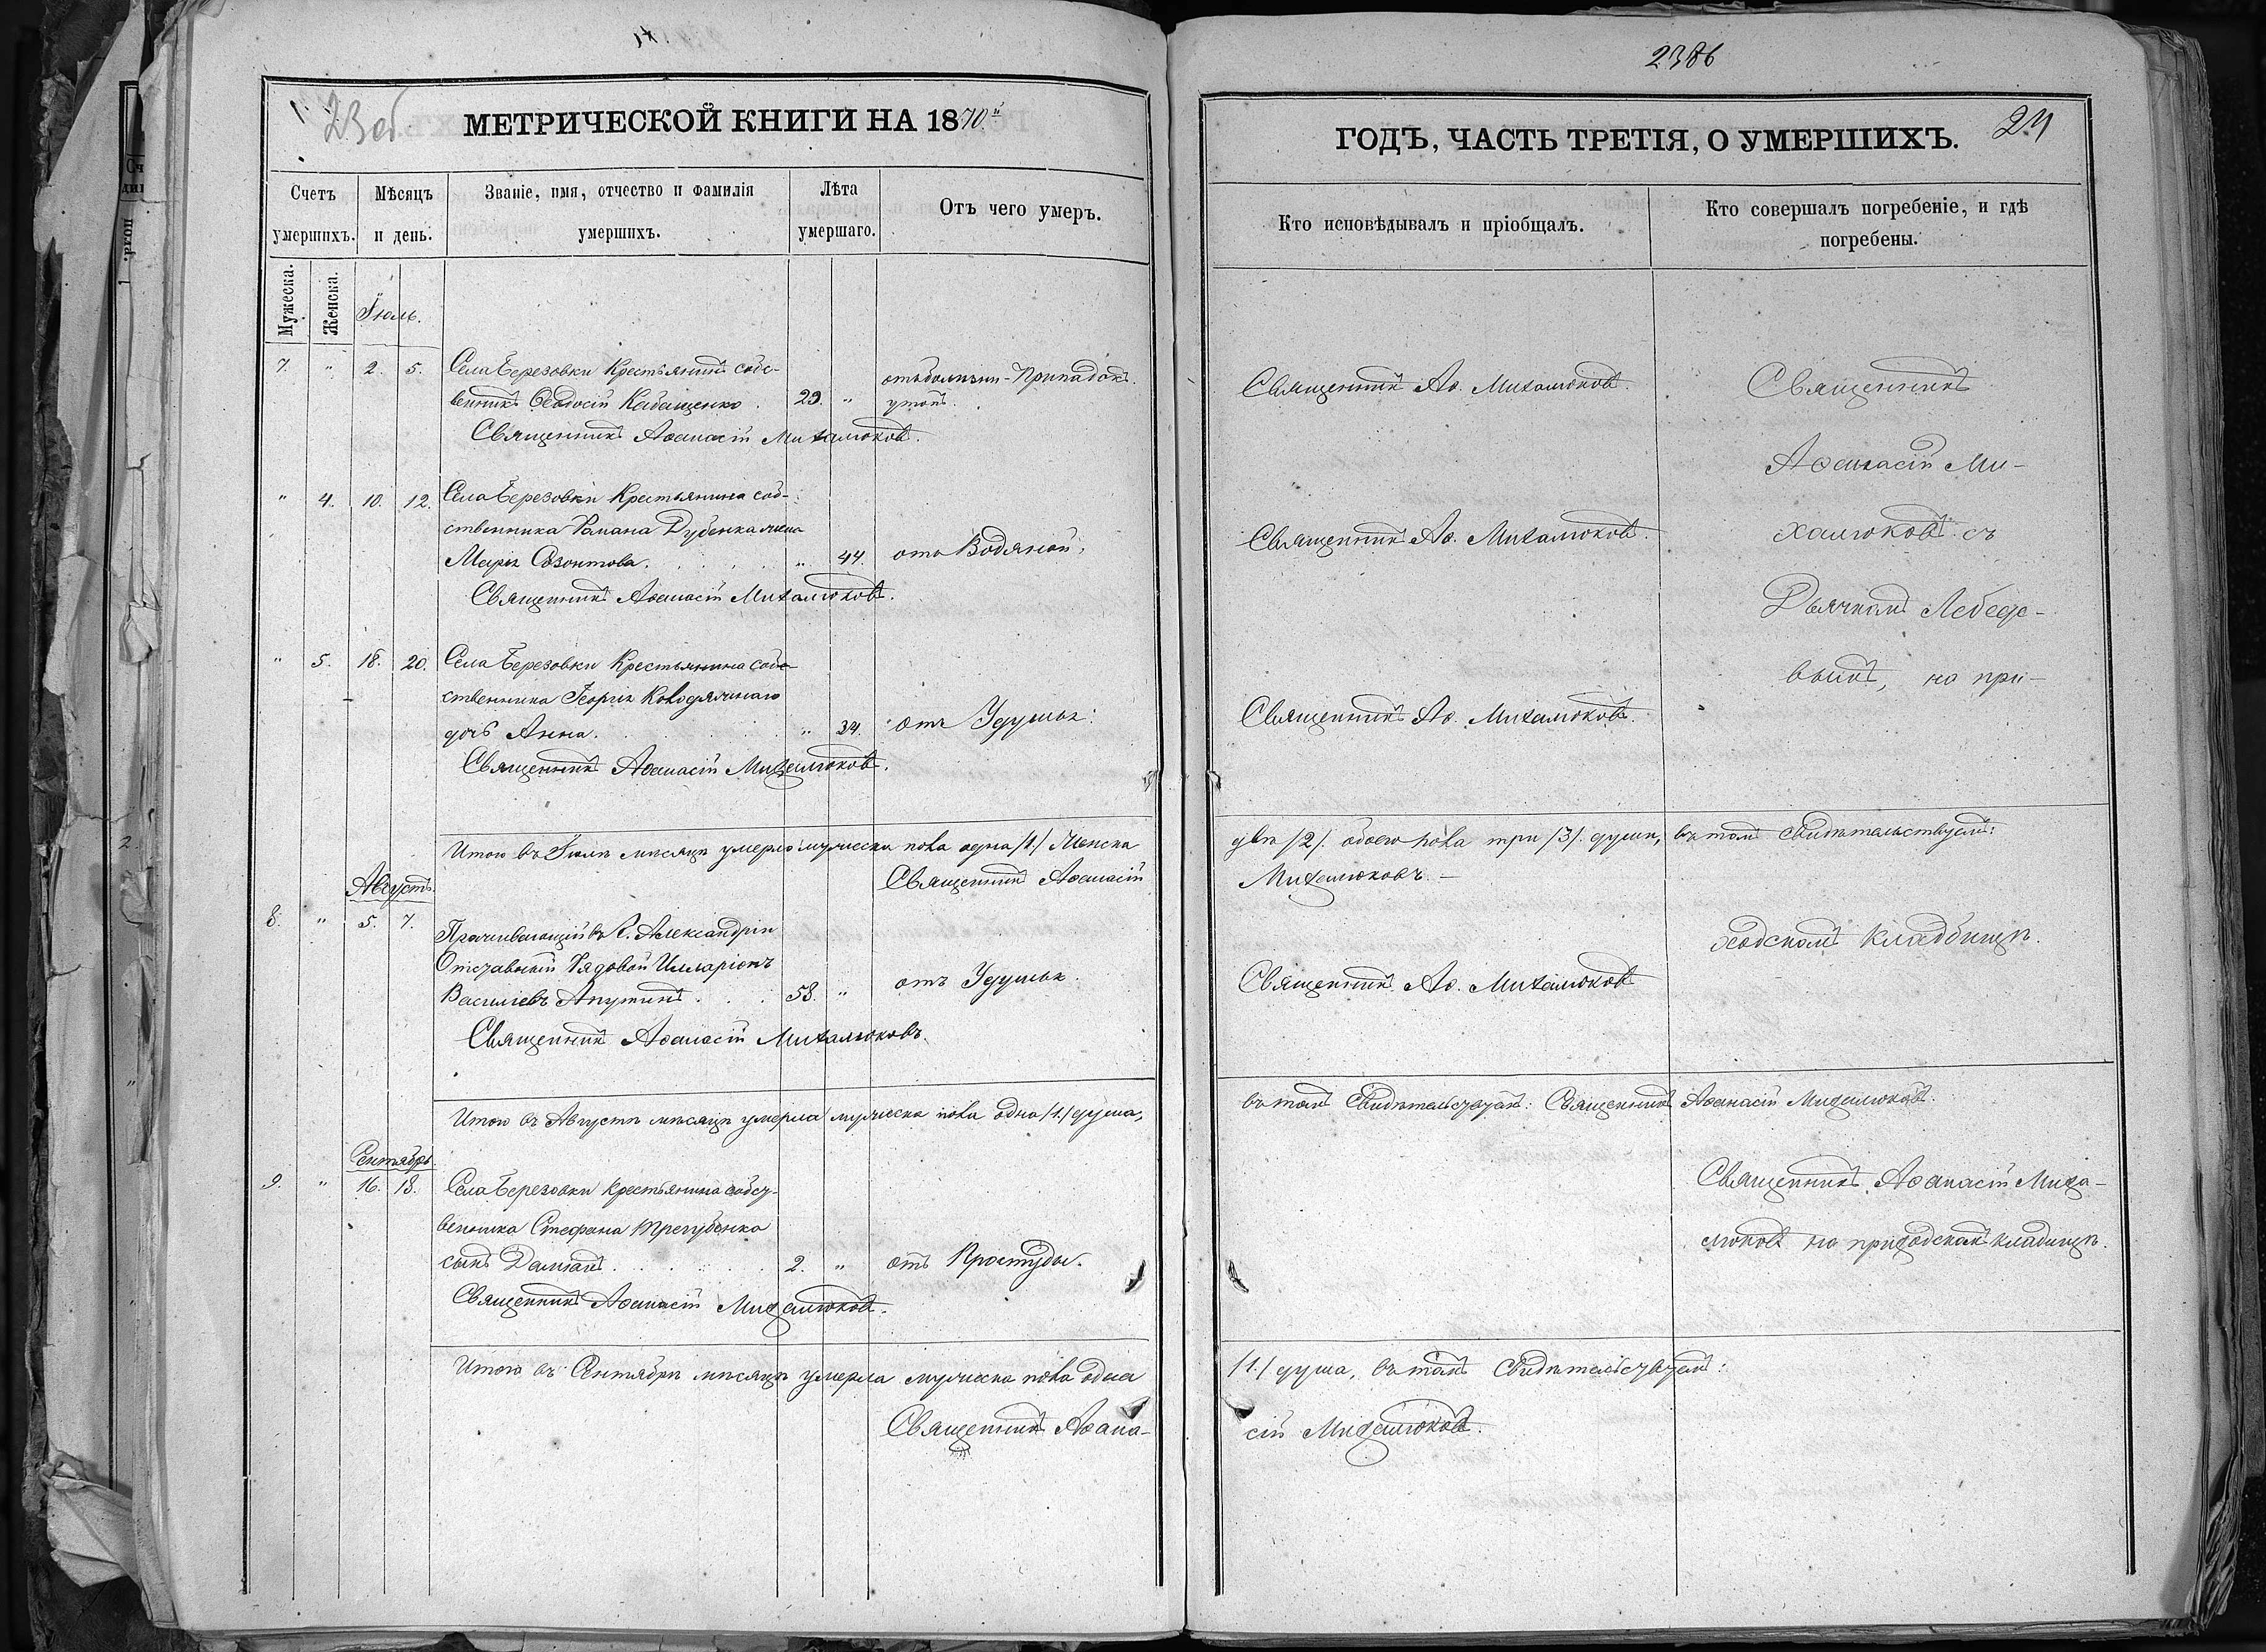 23об.
МЕТРИЧЕСКОЙ КНИГИ НА 1870й
Счетъ умершихъ.
Мѣсяцъ и день.
Званіе, имя, отчество и фамилія умершихъ.
Лѣта умершаго.
Отъ чего умеръ.
Мужеска.
Женска.
Іюль.
7. " 2. 5. Села Березовки Крестьянинъ собс-
венникъ Ѳеодосій Кабащенко. 29. "
отъ болѣзни-Припадокъ.
утопъ.
Священникъ Аѳанасій Михалюковъ.
" 4. 10. 12. Села Березовки Крестьянина соб-
ственника Романа Дубенка жена
Марія Созонтова. " 44. отъ Водяной.
Священникъ Аѳанасій Михалюковъ.
" 5. 18. 20. Села Березовки Крестьянина соб-
ственника Георгія
дочь Анна. " 34. отъ Удушья.
Священникъ Аѳанасій Михалюковъ.
Итого въ Іюлѣ мѣсяцѣ умерло мужеска пола одна /1/ Женска
Священникъ Аѳанасій
Августъ.
8. " 5. 7. Проживающій въ С. Александріи
Отставный Рядовой Илларіонъ
Василіевъ Апутинъ. 58. " отъ Удушья.
Священникъ Аѳанасій Михалюковъ.
Итого въ Августѣ мѣсяцѣ умерла мужеска пола одна /1./ душа,
Сентябрь.
9. " 16. 18. Села Березовки крестьянина собст-
венника Стефана Трегубенка
сынъ Даміанъ. 2. " отъ Простуды.
Священникъ Аѳанасій Михалюковъ.
Итого въ Сентябрѣ мѣсяцѣ умерла мужеска пола одна
Священникъ Аѳана-
24
ГОДЪ, ЧАСТЬ ТРЕТІЯ, О УМЕРШИХЪ.
Кто исповѣдывалъ и пріобщалъ.
Кто совершалъ погребеніе, и гдѣ
погребены.
Священникъ Аѳ. Михалюковъ.
Священникъ
Аѳанасій Ми-
Священникъ Аѳ. Михалюковъ.
халюковъ съ
Дьячкомъ Лебеде-
вымъ, на при-
Священникъ Аѳ. Михалюковъ.
двѣ /2/. обоего пола три /3/. души, въ томъ свидѣтельствуемъ:
Михалюковъ.—
ходскомъ кладбищѣ.
Священникъ Аѳ. Михалюковъ
въ томъ Свидѣтельствуемъ: Священникъ Аѳанасій Михалюковъ.
Священникъ Аѳанасій Миха-
люковъ на приходскомъ кладбищѣ.
/1./ душа, въ томъ Свидѣтельствуемъ:
сій Михалюковъ.